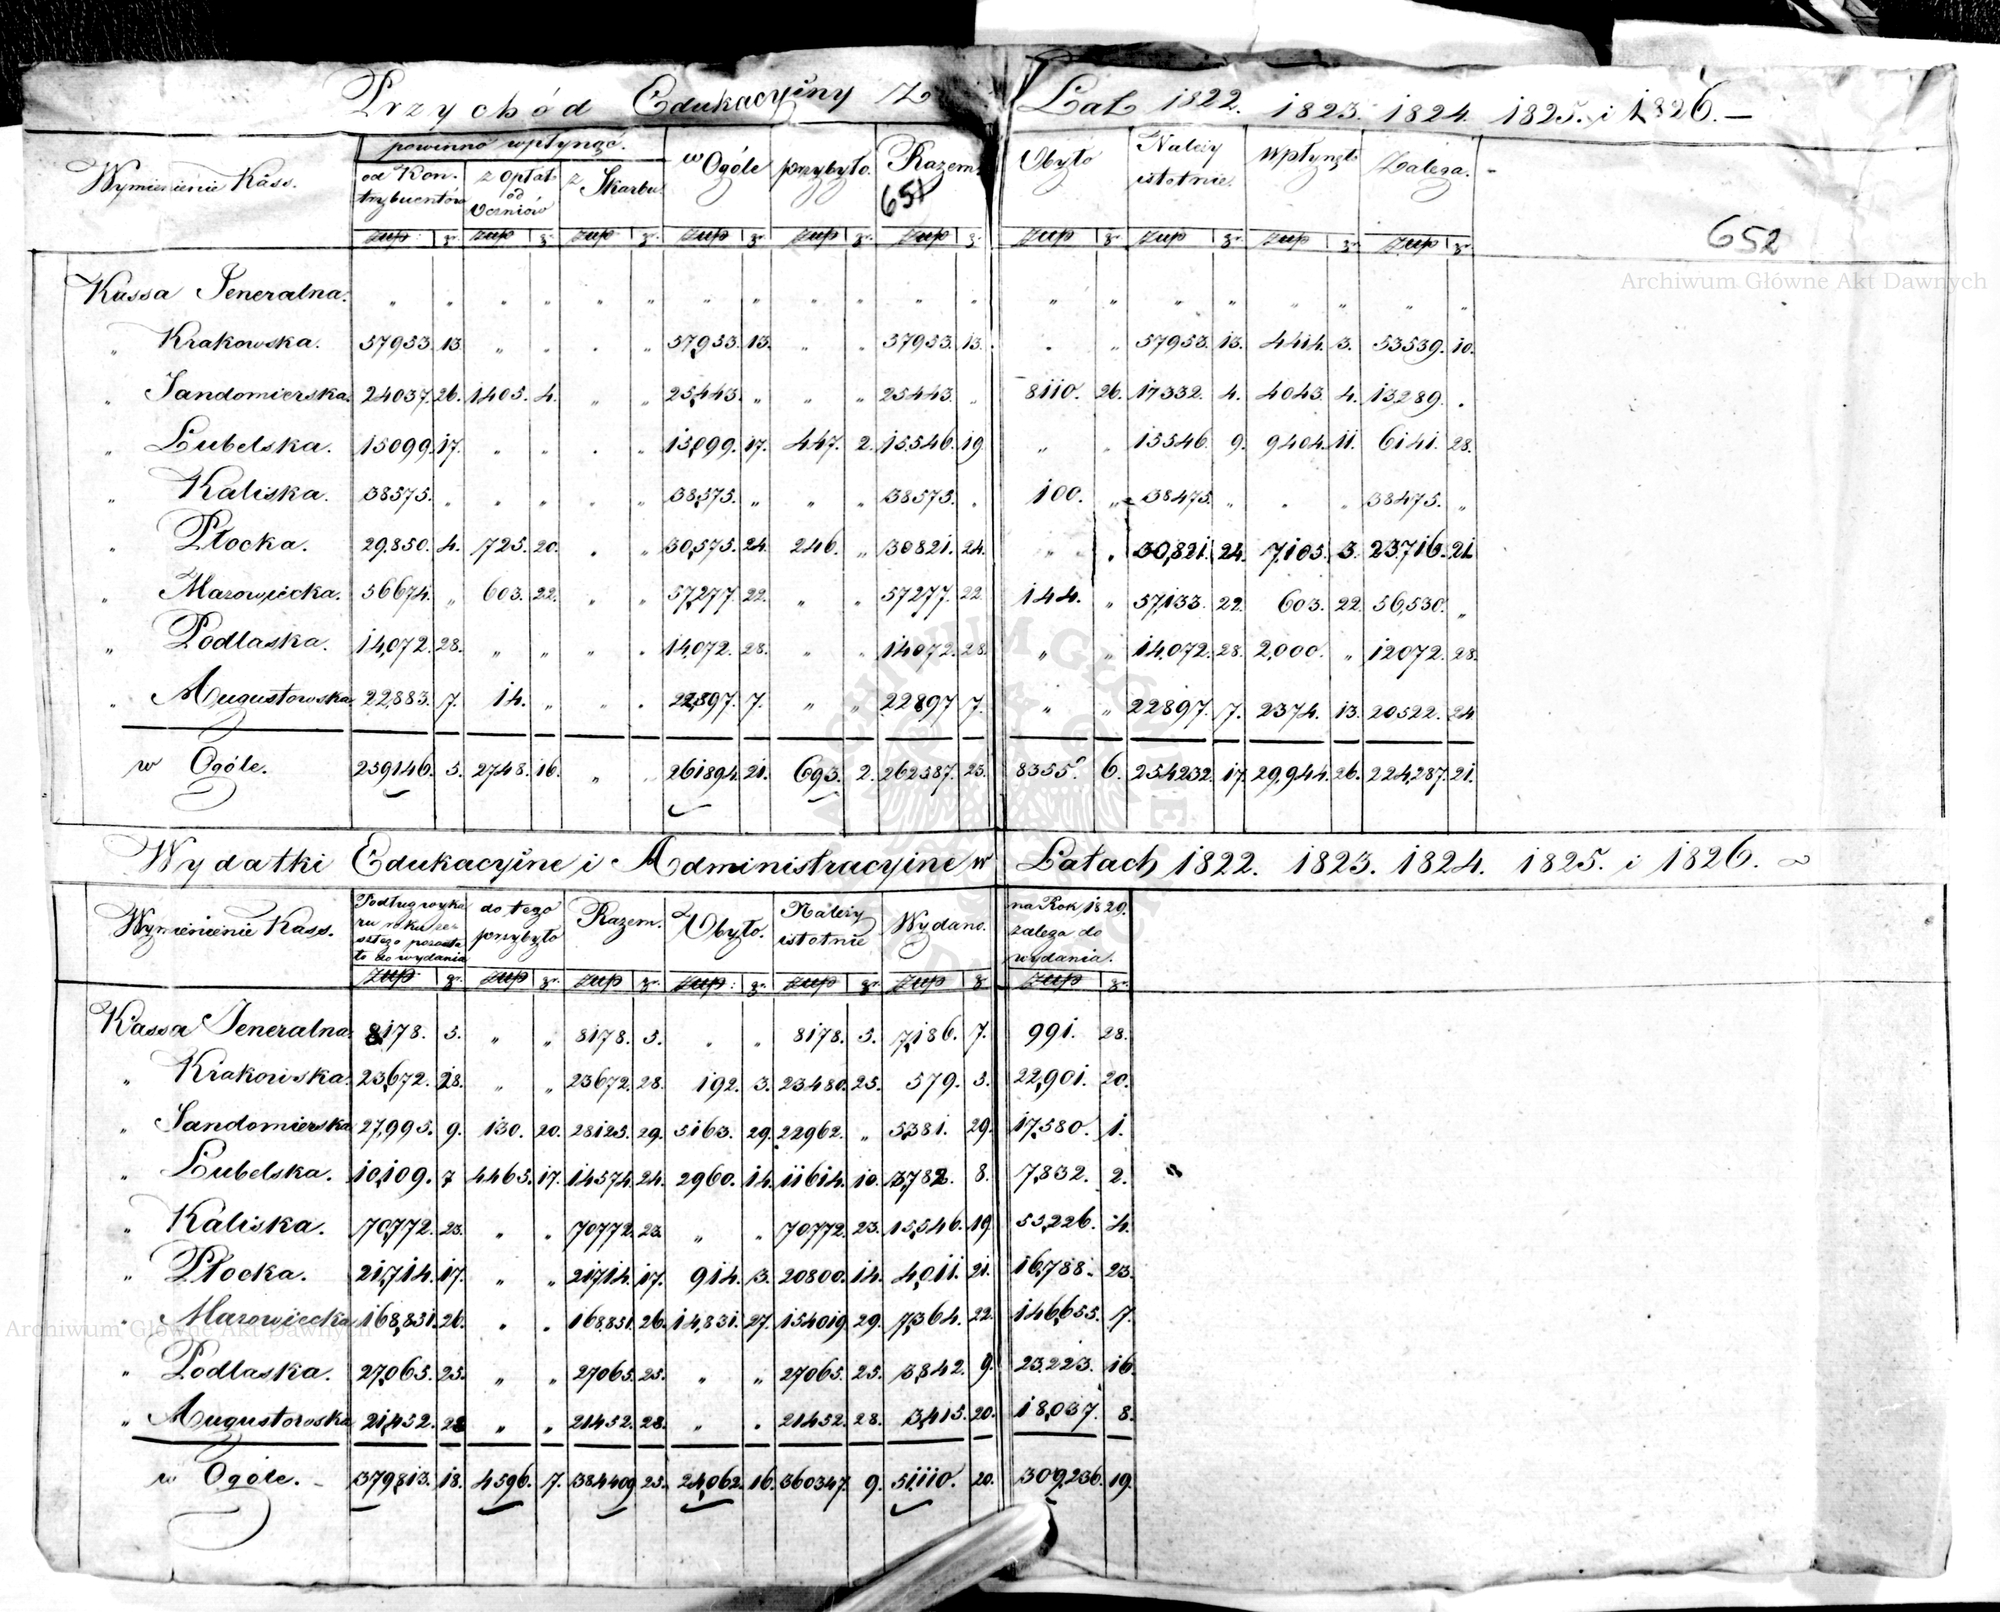 Przychód Edukacyiny z Lat 1822. 1823. 1824. 1825. i 1826. —
Wymienienie Kass. powinno wpłynąć. w Ogóle przybyło. Razem. Ubyło Należy istotnie. Wpłynęło Zalega.
od Kontrybuentów z Opłat od Uczniów z Skarbu
651
652
Złp gr. Złp gr. Złp gr. Złp gr. Złp gr. Złp g. Złp gr. Złp gr. Złp gr. Złp gr.
Archiwum Główne Akt Dawnych
Kassa Jeneralna. „ „ „ „ „ „ „ „ „ „ „ „ „ „ „ „ „ „ „ „
„ Krakowska. 57953. 13. „ „ „ „ 57,953. 13. „ „ 57953. 13. „ „ 57953. 13. 4414. 3. 53539. 10.
„ Sandomierska. 24037. 26. 1405. 4. „ „ 25,443. „ „ „ 25443. „ 8110. 26. 17332. 4. 4043. 4. 13289. „
„ Lubelska. 15099. 17. „ „ „ „ 15,099. 17. 447. 2. 15546. 19. „ „ 15546. 9. 9404. 11. 6141. 28.
„ Kaliska. 38575. „ „ „ „ „ 38,575. „ „ „ 38575. „ 100. „ 38475. „ „ „ 38475. „
„ Płocka. 29,850. 4. 725. 20. „ „ 30,575. 24. 246. „ 30821. 24. „ „ 30,821. 24. 7,105. 3. 23,716. 21.
„ Mazowiecka. 56674. „ 603. 22. „ „ 57,277. 22. „ „ 57277. 22. 144. „ 57,133. 22. 603. 22. 56,530. „
„ Podlaska. 14,072. 28. „ „ „ „ 14,072. 28. „ „ 14072. 28. „ „ 14,072. 28. 2,000. „ 12072. 28.
„ Augustowska 22,883. 7. 14. „ „ „ 22,897. 7. „ „ 22897 7. „ „ 22897. 7. 2374. 13. 20522. 24.
w Ogóle. 259146. 5. 2748. 16. „ „ 261894. 21. 693. 2. 262587. 23. 8355. 6. 254232. 17. 29,944. 26. 224,287. 21.
Wydatki Edukacyine i Administracyine w Latach 1822. 1823. 1824. 1825. i 1826.
Wymienienie Kass. Podług wykazu roku zeszłego pozostało do wydania do tego przybyło Razem. Ubyło. Należy istotnie Wydano. na Rok 1829. zalega do wydania.
Złp gr. Złp gr. Złp gr. Złp gr. Złp gr. Złp g. Złp gr.
Kassa Jeneralna 8,178. 5. „ „ 8178. 5. „ „ 8178. 5. 7,186. 7. 991. 28.
„ Krakowska. 23,672. 28. „ „ 23672. 28. 192. 3. 23480. 25. 579. 5. 22,901. 20.
„ Sandomierska 27,995. 9. 130. 20. 28125. 29. 5163. 29. 22962. „ 5,381. 29. 17,580. 1.
„ Lubelska. 10,109. 7 4465. 17. 14574. 24. 2960. 14. 11614. 10. 3,782. 8. 7,832. 2.
„ Kaliska. 70,772. 23. „ „ 70772. 23. „ „ 70772. 23. 15,546. 19. 55,226. 4.
„ Płocka. 21,714. 17. „ „ 21714. 17. 914. 3. 20800. 14. 4,011. 21. 16,788. 23.
„ Mazowiecka 168,851. 26. „ „ 168,851. 26. 14,831. 27. 154019 29. 7,364. 22. 146,655. 7.
Archiwum Główne Akt Dawnych
„ Podlaska. 27,065. 25. „ „ 27065. 25. „ „ 27065. 25. 3,842. 9. 23,223. 16.
„ Augustowska 21,452. 28 „ „ 21452. 28. „ „ 21452. 28. 3,415. 20. 18,037. 8.
w Ogóle. 379,813. 18. 4596. 7. 384409 25. 24,062. 16. 360347. 9. 51,110. 20. 309,236. 19.